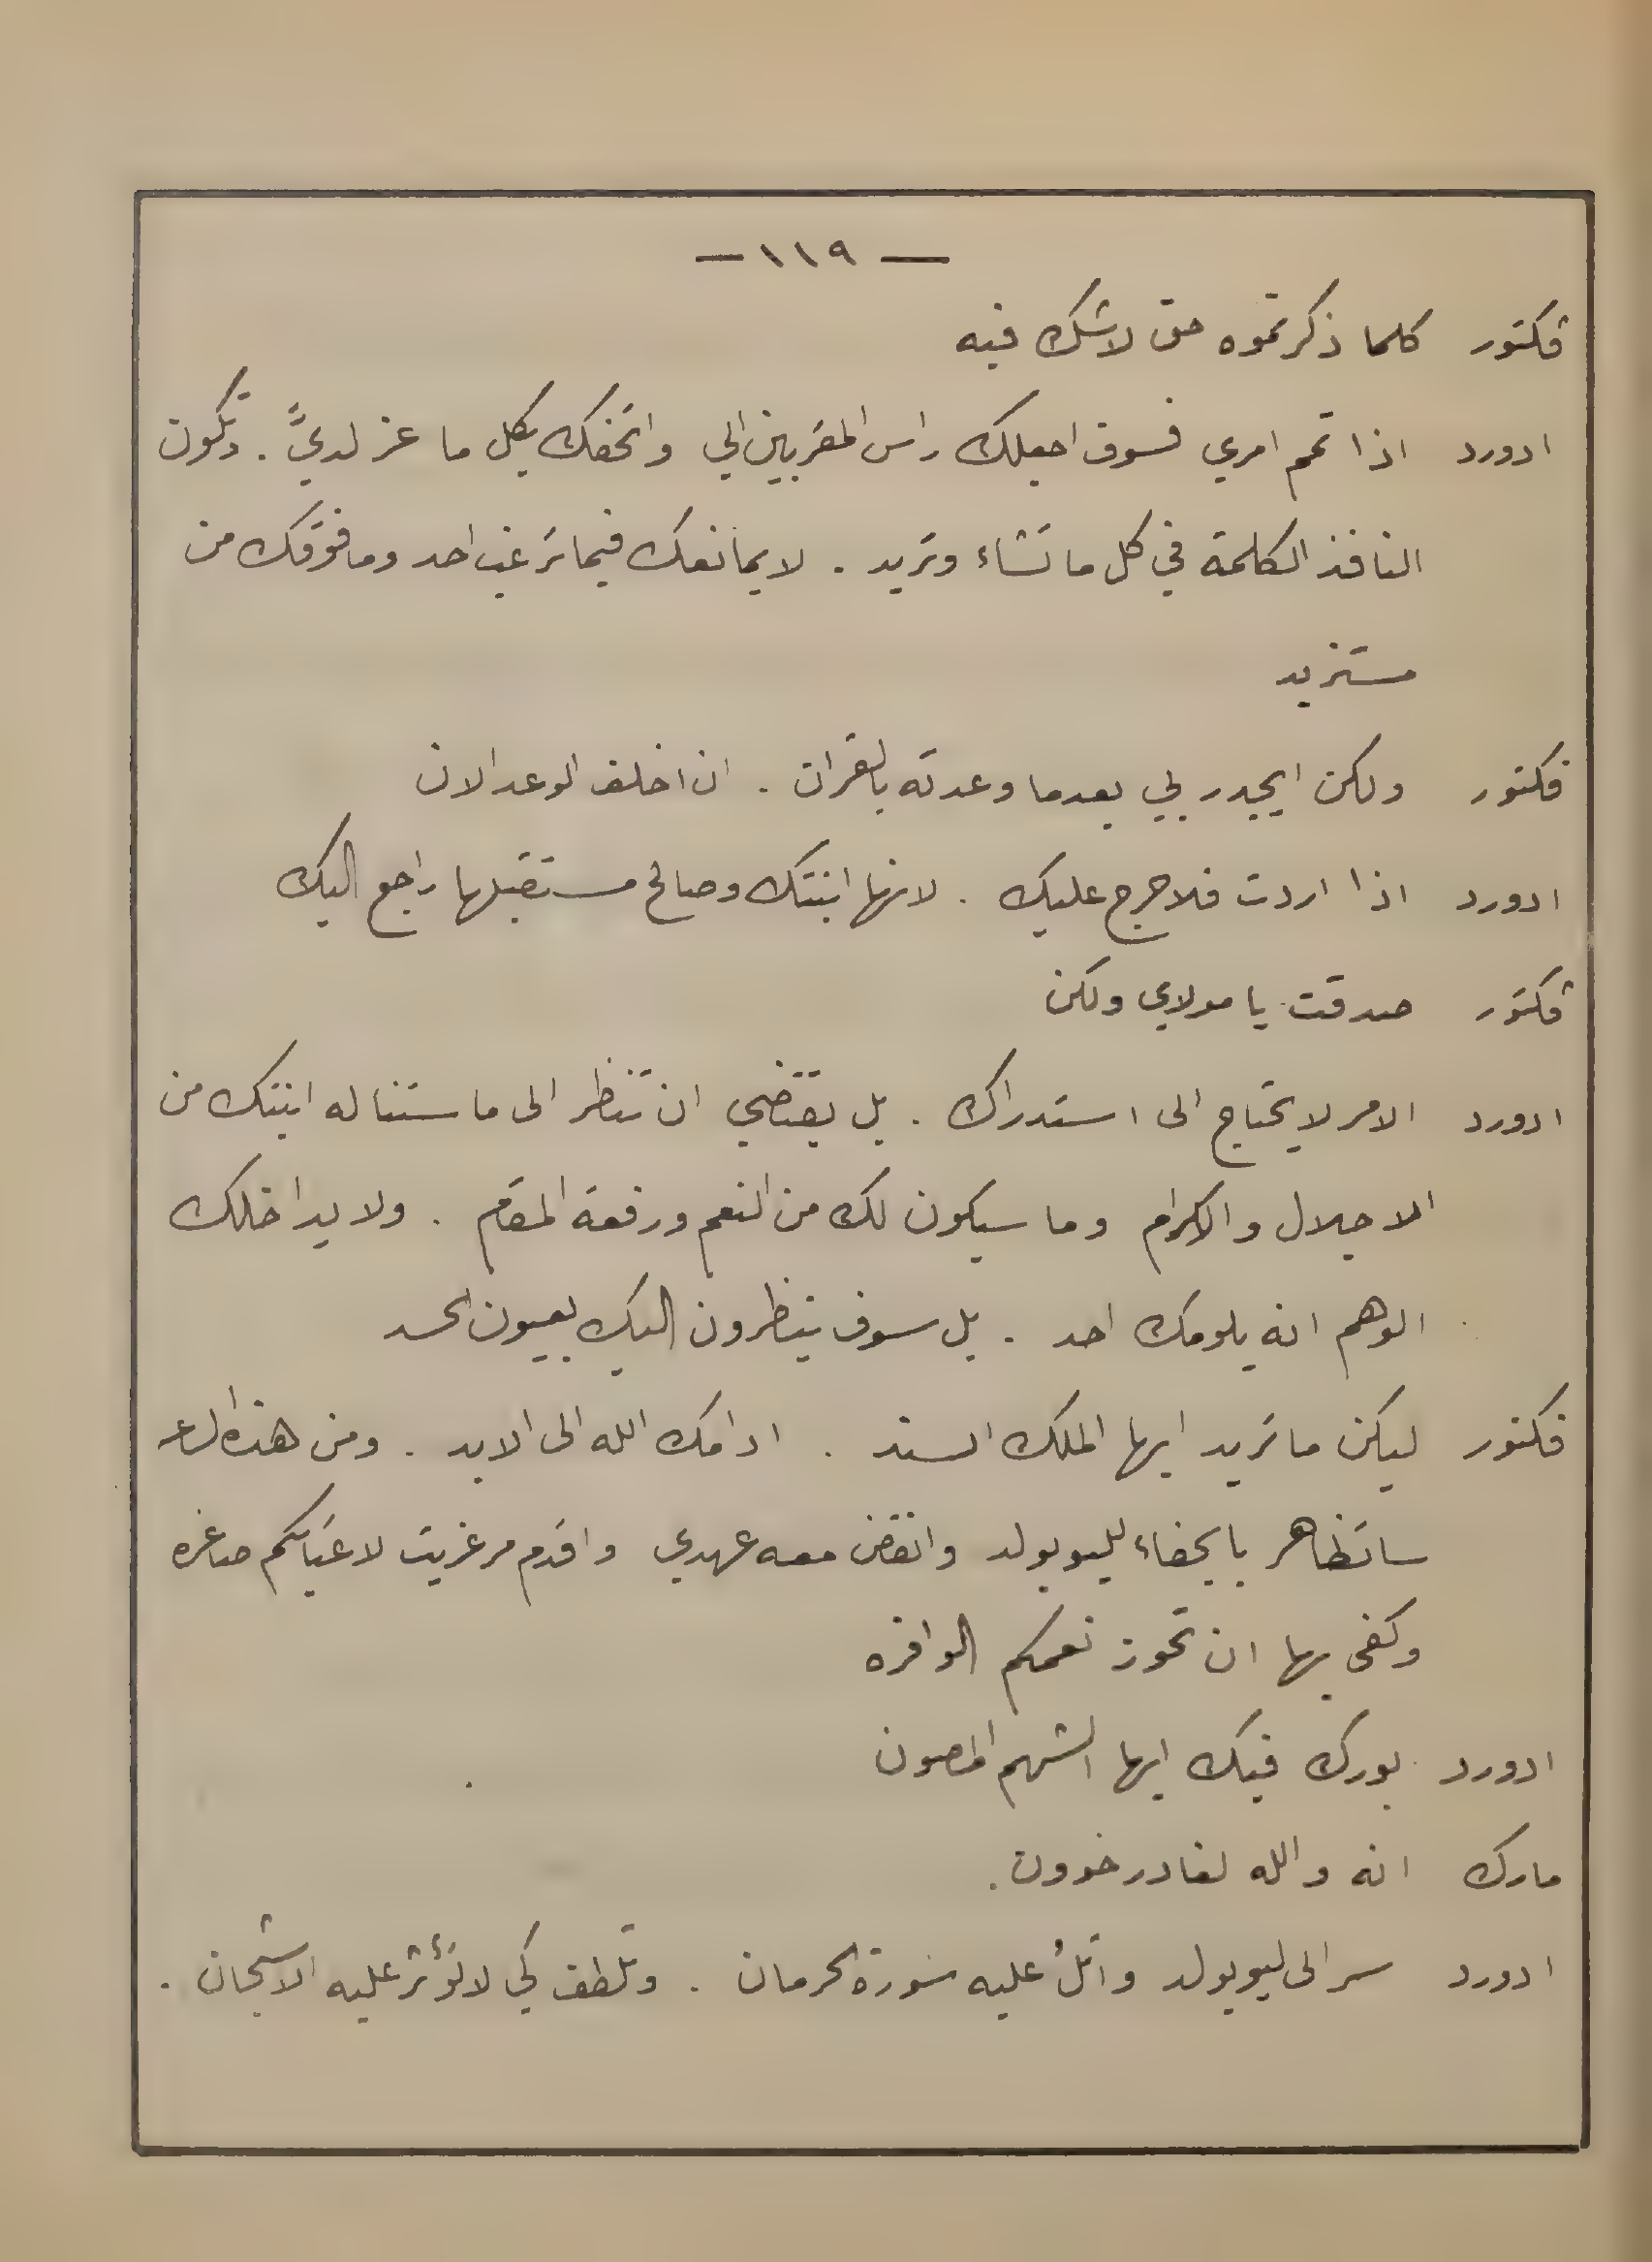 — ١١٩ —
ڤكتور كلما ذكرتموه حق لا شك فيه
ادورد اذا تم امري فسوف اجعلك راس المقربين الي واتحفك بكل ما عز لديَّ . وتكون
النافذ الكلمة في كل ما تشاء وتريد . لا يمانعك فيما ترغب احد وما فوقك من
مستزيد
فكتور ولكن ايجدر بي بعدما وعدته بالقران . ان اخلف الوعد الان
ادورد اذا اردت فلا حرج عليك . لانها ابنتك وصالح مستقبلها راجع اليك
ڤكتور صدقت يا مولاي ولكن
ادورد الامر لا يحتاج الى استدراك . بل يقتضي ان تنظر الى ما ستناله ابنتك من
الاجلال والاكرام وما سيكون لك من النعم ورفعة المقام . ولا يداخلك
الوهم انه يلومك احد . بل سوف ينظرون اليك بعيون الحسد
فكتور ليكن ما تريد ايها الملك السند . ادامك الله الى الابد . ومن هذه الساعه
ساتظاهر بالجفاء لليوبولد وانقض معه عهدي واقدم مرغريت لاعتابكم صاغره
وكفى بها ان تحوز نعمكم الوافره
ادورد بورك فيك ايها الشهم المصون
مارك انه والله لغادر خوون .
ادورد سر الى ليوبولد واتلُ عليه سورة الحرمان . وتلطف كي لا تؤثر عليه الاشجان .